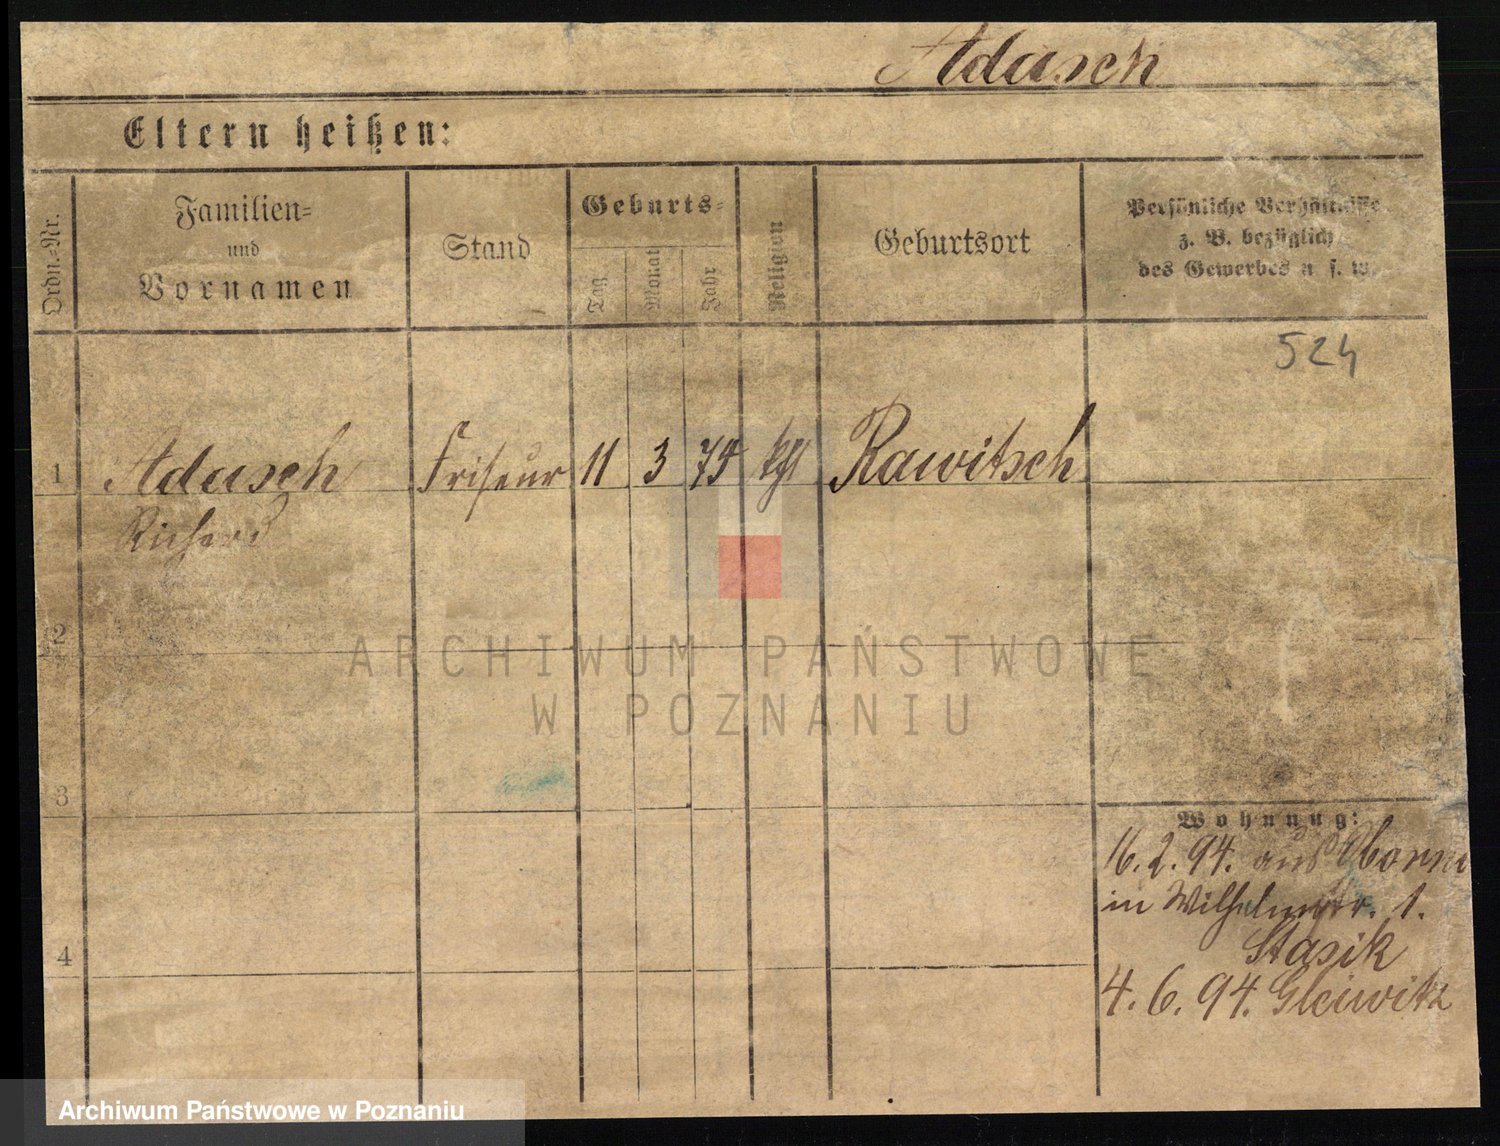 Adasch
Eltern heißen:
Ordn.-Nr.
Familien-
und
Vornamen
Stand
Geburts-
Tag
Monat
Jahr
Religion
Geburtsort
Persönliche Verhältnisse
z. B. bezüglich
des Gewerbes u. s. w.
524
1 Adasch Friseur 11 3 75 kgl Rawitsch
Richard
2
3
4
Wohnung:
16. 2. 94. aus
in Wilhelmstr. 1.
Stasik
4. 6. 94. Gleiwitz
ARCHIWUM PAŃSTWOWE
W POZNANIU
Archiwum Państwowe w Poznaniu